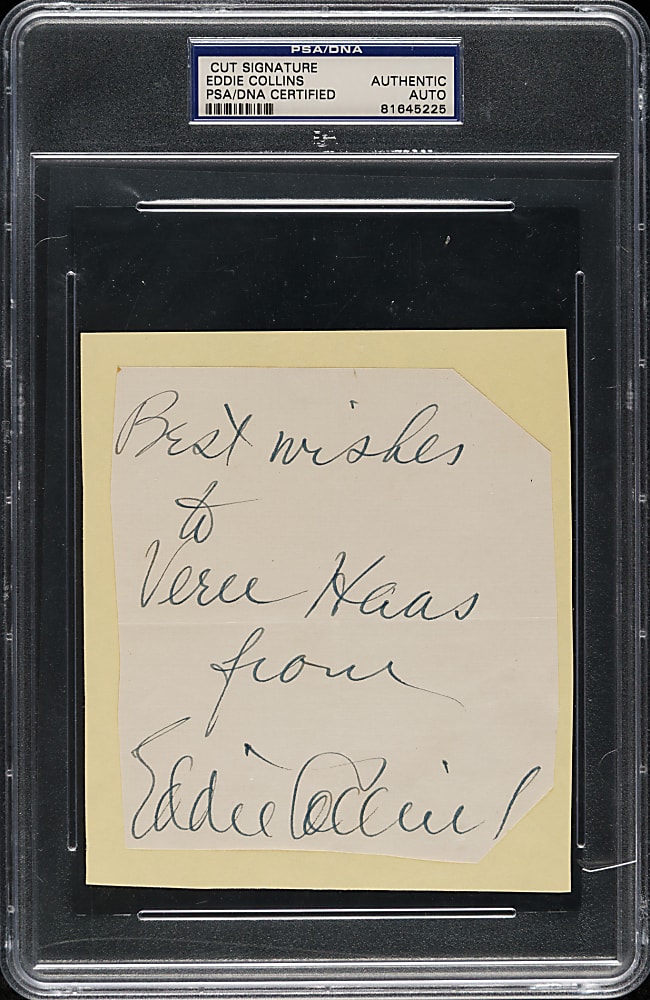 PSA/DNA
CUT SIGNATURE
EDDIE COLLINS AUTHENTIC
PSA/DNA CERTIFIED AUTO
81645225
Best wishes
to
Vern Haas
from
Eddie Collins